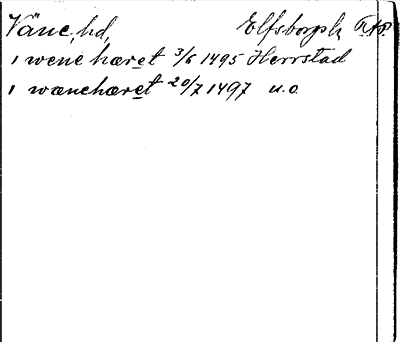 Väne, hd, Elfsborgs l.
i wene hæret 3/6 1495 Herrstad
i wænehæret 20/7 1497 u.o.